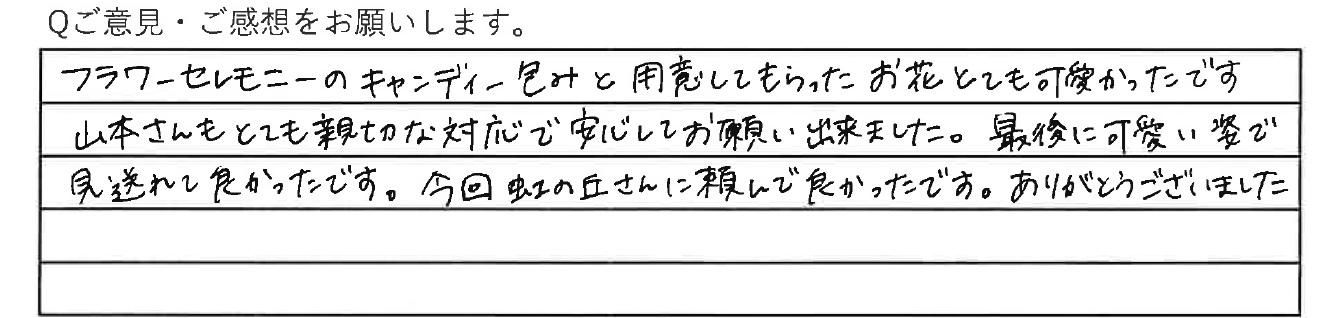 Qご意見・ご感想をお願いします。
フラワーセレモニーのキャンディー包みと用意してもらったお花とても可愛かったです
山本さんもとても親切な対応で安心してお願い出来ました。最後に可愛い姿で
見送れて良かったです。今回虹の丘さんに頼んで良かったです。ありがとうございました